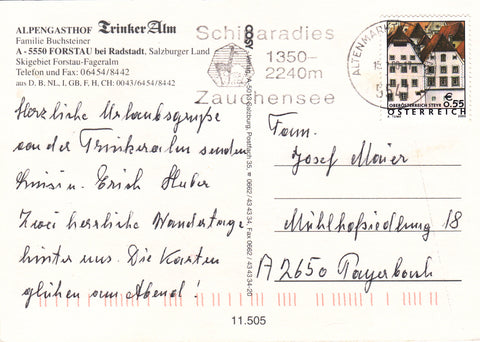 ALPENGASTHOF Trinker Alm
Familie Buchsteiner
A - 5550 FORSTAU bei Radstadt, Salzburger Land
Skigebiet Forstau-Fageralm
Telefon und Fax: 06454/8442
aus D, B, NL, I, GB, F, H, CH: 0043/6454/8442
Schiparadies
1350-
2240m
Zauchensee
ALTENMARK
OBERÖSTERREICH STEYR
€ 0.55
ÖSTERREICH
Herzliche Urlaubsgrüße
von der Trinkeralm senden
Erich Huber
Zwei herrliche Wandertage
hinter uns. Die Karten
glühen am Abend!
Fam.
Josef Maier
Mühlhofsiedlung 18
A 2650 Payerbach
Salzburg, Postfach 35, 0662/43 43 34, Fax 0662/43 43 34-20
11.505